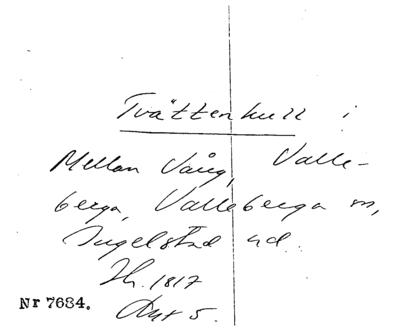 Tvättenkull i
Mellan Vång, Valle-
berga, Valleberga sn,
Ingelstad hd.
Nr 7634.